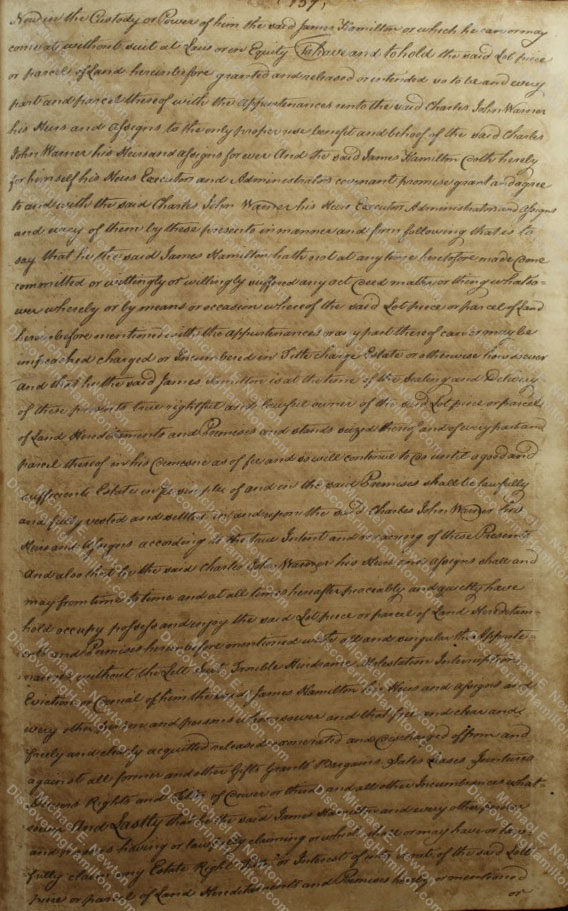 (157)
Now in the Custody or Power of him the said James Hamilton or which he can or may
come at without suit at Law or in Equity To have and to hold the said Lot piece
or parcel of Land hereinbefore granted and released or intended so to be and every
part and parcel thereof with the Appurtenances unto the said Charles John Warner
his Heirs and Assigns to the only proper use benefit and behoof of the said Charles
John Warner his Heirs and Assigns for ever And the said James Hamilton doth hereby
for himself his Heirs Executors and Administrators covenant promise grant and agree
to and with the said Charles John Warner his Heirs Executors Administrators and Assigns
and every of them by these presents in manner and form following that is to
say that he the said James Hamilton hath not at any time heretofore made done
committed or wittingly or willingly suffered any act deed matter or thing whatso-
ever whereby or by means or occasion whereof the said Lot piece or parcel of Land
hereinbefore mentioned with the Appurtenances or any part thereof can or may be
impeached charged or Incumbered in Title charge Estate or otherwise howsoever
And that he the said James Hamilton is at the time of the Sealing and Delivery
of these presents true rightful and lawful owner of the said Lot piece or parcel
of Land Hereditaments and Premises and stands seized thereof and of every part and
parcel thereof in his Demesne as of fee and so will continue to be until a good and
sufficient Estate in fee simple of and in the said Premises shall be lawfully
and fully vested and settled in and upon the said Charles John Warner his
Heirs and Assigns according to the true Intent and meaning of these Presents
And also that he the said Charles John Warner his Heirs and Assigns shall and
may from time to time and at all times hereafter peaceably and quietly have
hold occupy possess and enjoy the said Lot piece or parcel of Land Hereditam-
ents and Premises hereinbefore mentioned with all and singular the Appurte-
nances without the Lett Suit Trouble Hindrance Molestation Interruption
Eviction or Denial of him the said James Hamilton his Heirs and Assigns and
every other person and persons whomsoever and that free and clear and
freely and clearly acquitted released exonerated and discharged of from and
against all former and other Gifts Grants Bargains Sales Leases Jointures
Dowers Rights and Title of Dower or thirds and all other Incumbrances what-
soever And Lastly that he the said James Hamilton and every other person
and persons having or lawfully claiming or which shall or may have or law-
fully claim any Estate Right Title or Interest of into or out of the said Lott
piece or parcel of Land Hereditaments and Premises hereby mentioned
or
Michael E. Newton
DiscoveringHamilton.com